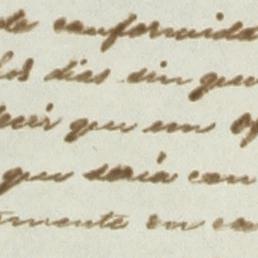 de conformida
los dias sin que
decir que em Of
que daria con
mente en ca